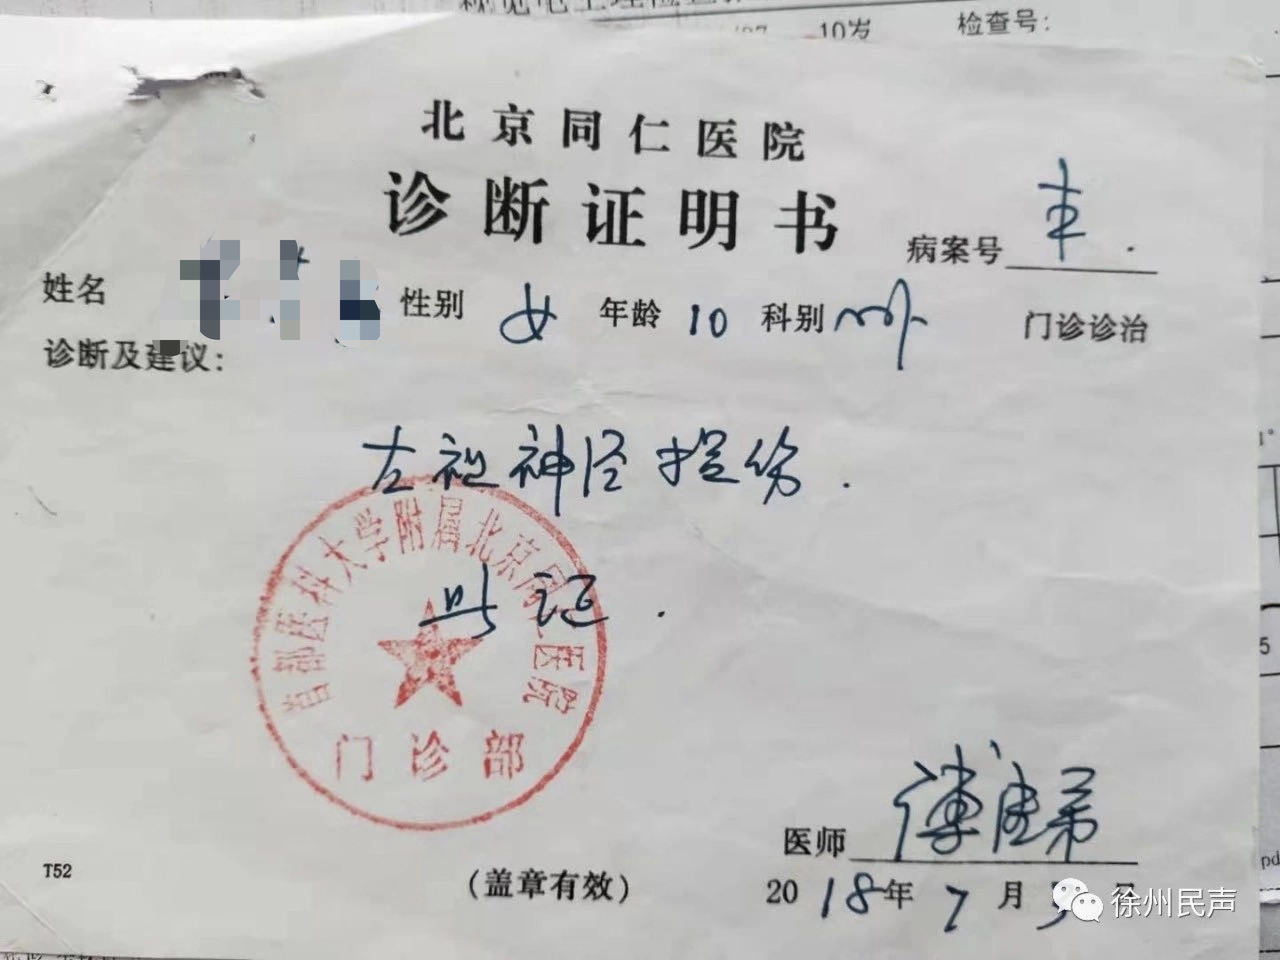 10岁 检查号:
北京同仁医院
诊断证明书
病案号
姓名 性别 女 年龄 10 科别 门诊诊治
诊断及建议:
左视神经挫伤.
此证.
首都医科大学附属北京同仁医院
门诊部
医师
T52
(盖章有效)
2018年7月 日
徐州民声